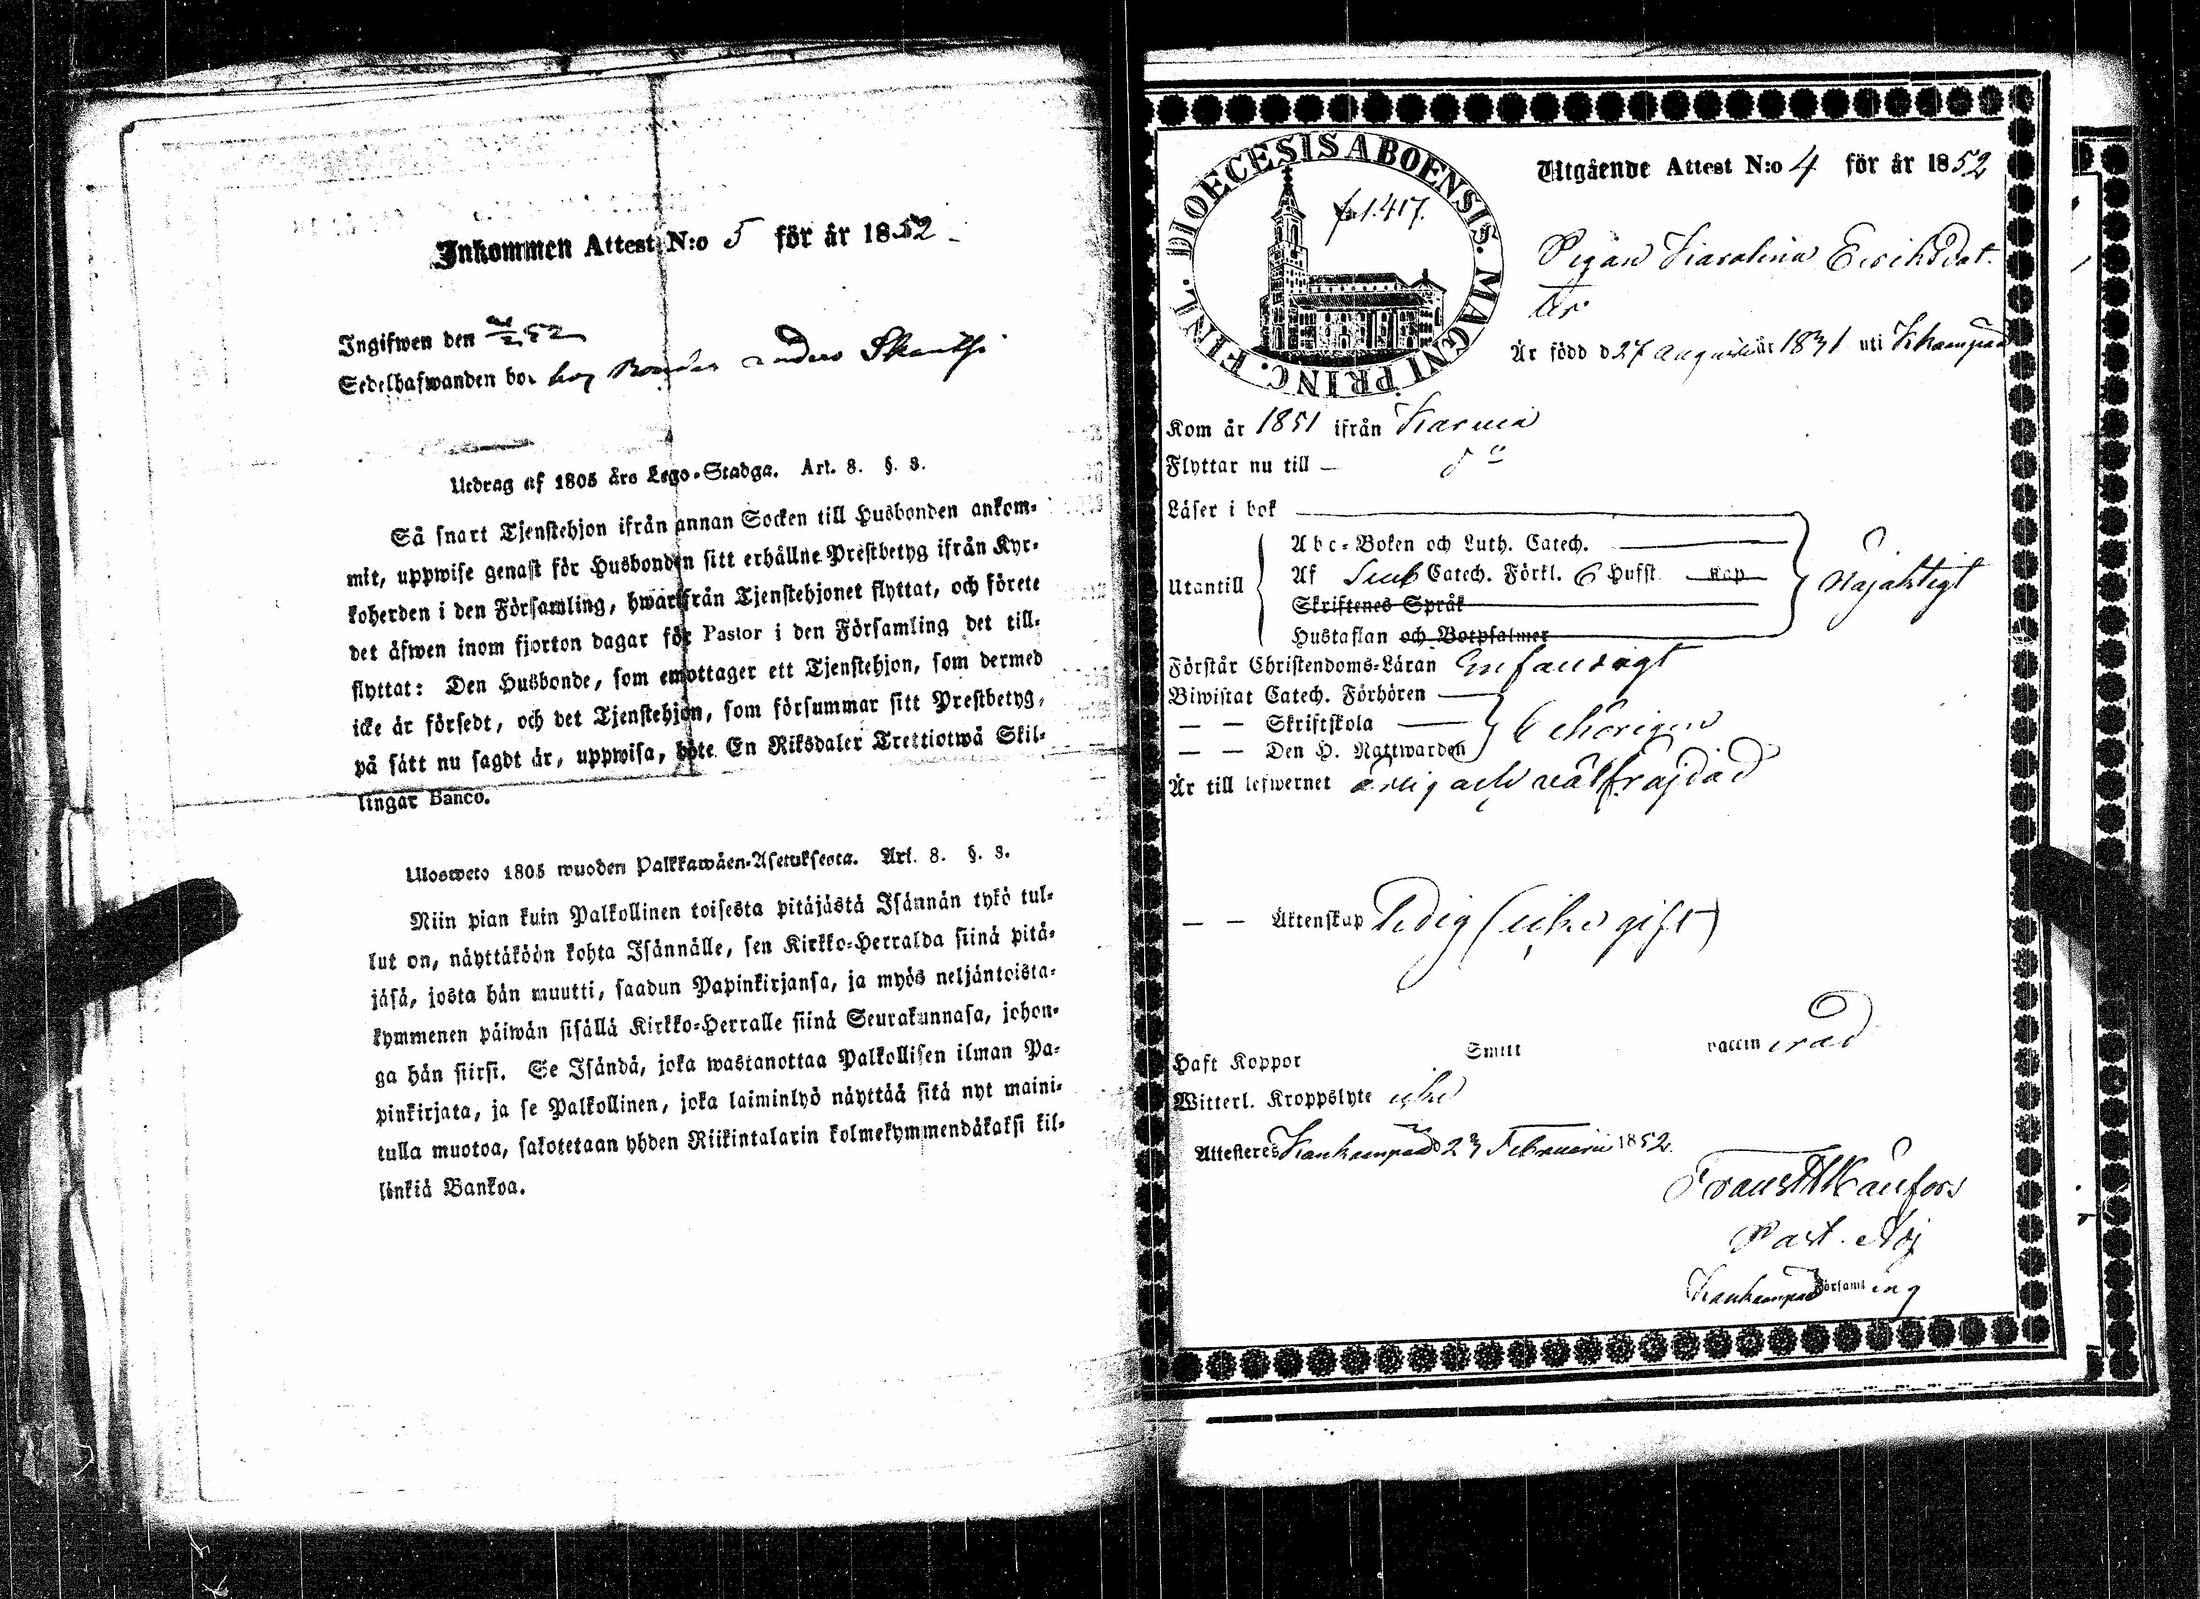 Inkommen Attest N:o 5 för år 1852
Ingifwen den 52
Sedelhafwanden bor hos Bonden Anders
Utdrag af 1805 års Lego-Stadga. Art. 8. §. 8.
Så snart Tjenstehjon ifrån annan Socken till Husbonden ankom-
mit, uppwise genast för Husbonden sitt erhållne Prestbetyg ifrån Kyr-
koherden i den Församling, hwarifrån Tjenstehjonet flyttat, och förete
det äfwen inom fjorton dagar för Pastor i den Församling det till-
flyttat: Den Husbonde, som emottager ett Tjenstehjon, som dermed
icke är försedt, och det Tjenstehjon, som försummar sitt Prestbetyg,
på sätt nu sagdt är, uppwisa, böte En Riksdaler Trettiotwå Skil-
lingar Banco.
Ulosweto 1805 wuoden Palkkawäen-Asetuksesta. Art. 8. §. 8.
Niin pian kuin Palkollinen toisesta pitäjästä Isännän tykö tul-
lut on, näyttäköön kohta Isännälle, sen Kirkko-Herralda siinä pitä-
jäsä, josta hän muutti, saadun Papinkirjansa, ja myös neljäntoista-
kymmenen päiwän sisällä Kirkko-Herralle siinä Seurakunnasa, johon-
ga hän siirsi. Se Isändä, joka wastanottaa Palkollisen ilman Pa-
pinkirjata, ja se Palkollinen, joka laiminlyö näyttää sitä nyt maini-
tulla muotoa, sakotetaan yhden Riikintalarin kolmekymmendäkaksi kil-
linkiä Bankoa.
DIOECESIS ABOENSIS. MAGNI PRINC. FINL.
fol. 417.
Utgående Attest N:o 4 för år 1852
Pigan Karolina Eriksdot-
ter
Är född d 27 Augusti år 1831 uti Kkaanpää
Kom år 1851 ifrån Karvia
Flyttar nu till — do
Läser i bok
Abc-Boken och Luth. Catech.
Utantill Af Sveb Catech. Förkl. 6 Hufst. Kap
Skriftenes Språk
Hustaflan och Botpsalmer
Nöjaktigt
Förstår Christendoms-Läran Enfaldigt
Biwistat Catech. Förhören
— — Skriftskola
— — Den H. Nattwarden
behörigen
Är till lefwernet ärlig och välfräjdad
— — Äktenskap Ledig (icke gift)
Haft Koppor Smitt vaccinerad
Witterl. Kroppslyte icke
Attesteres Kankaanpää d 23 Februarii 1852.
Past. Adj
Kankaanpää Församling